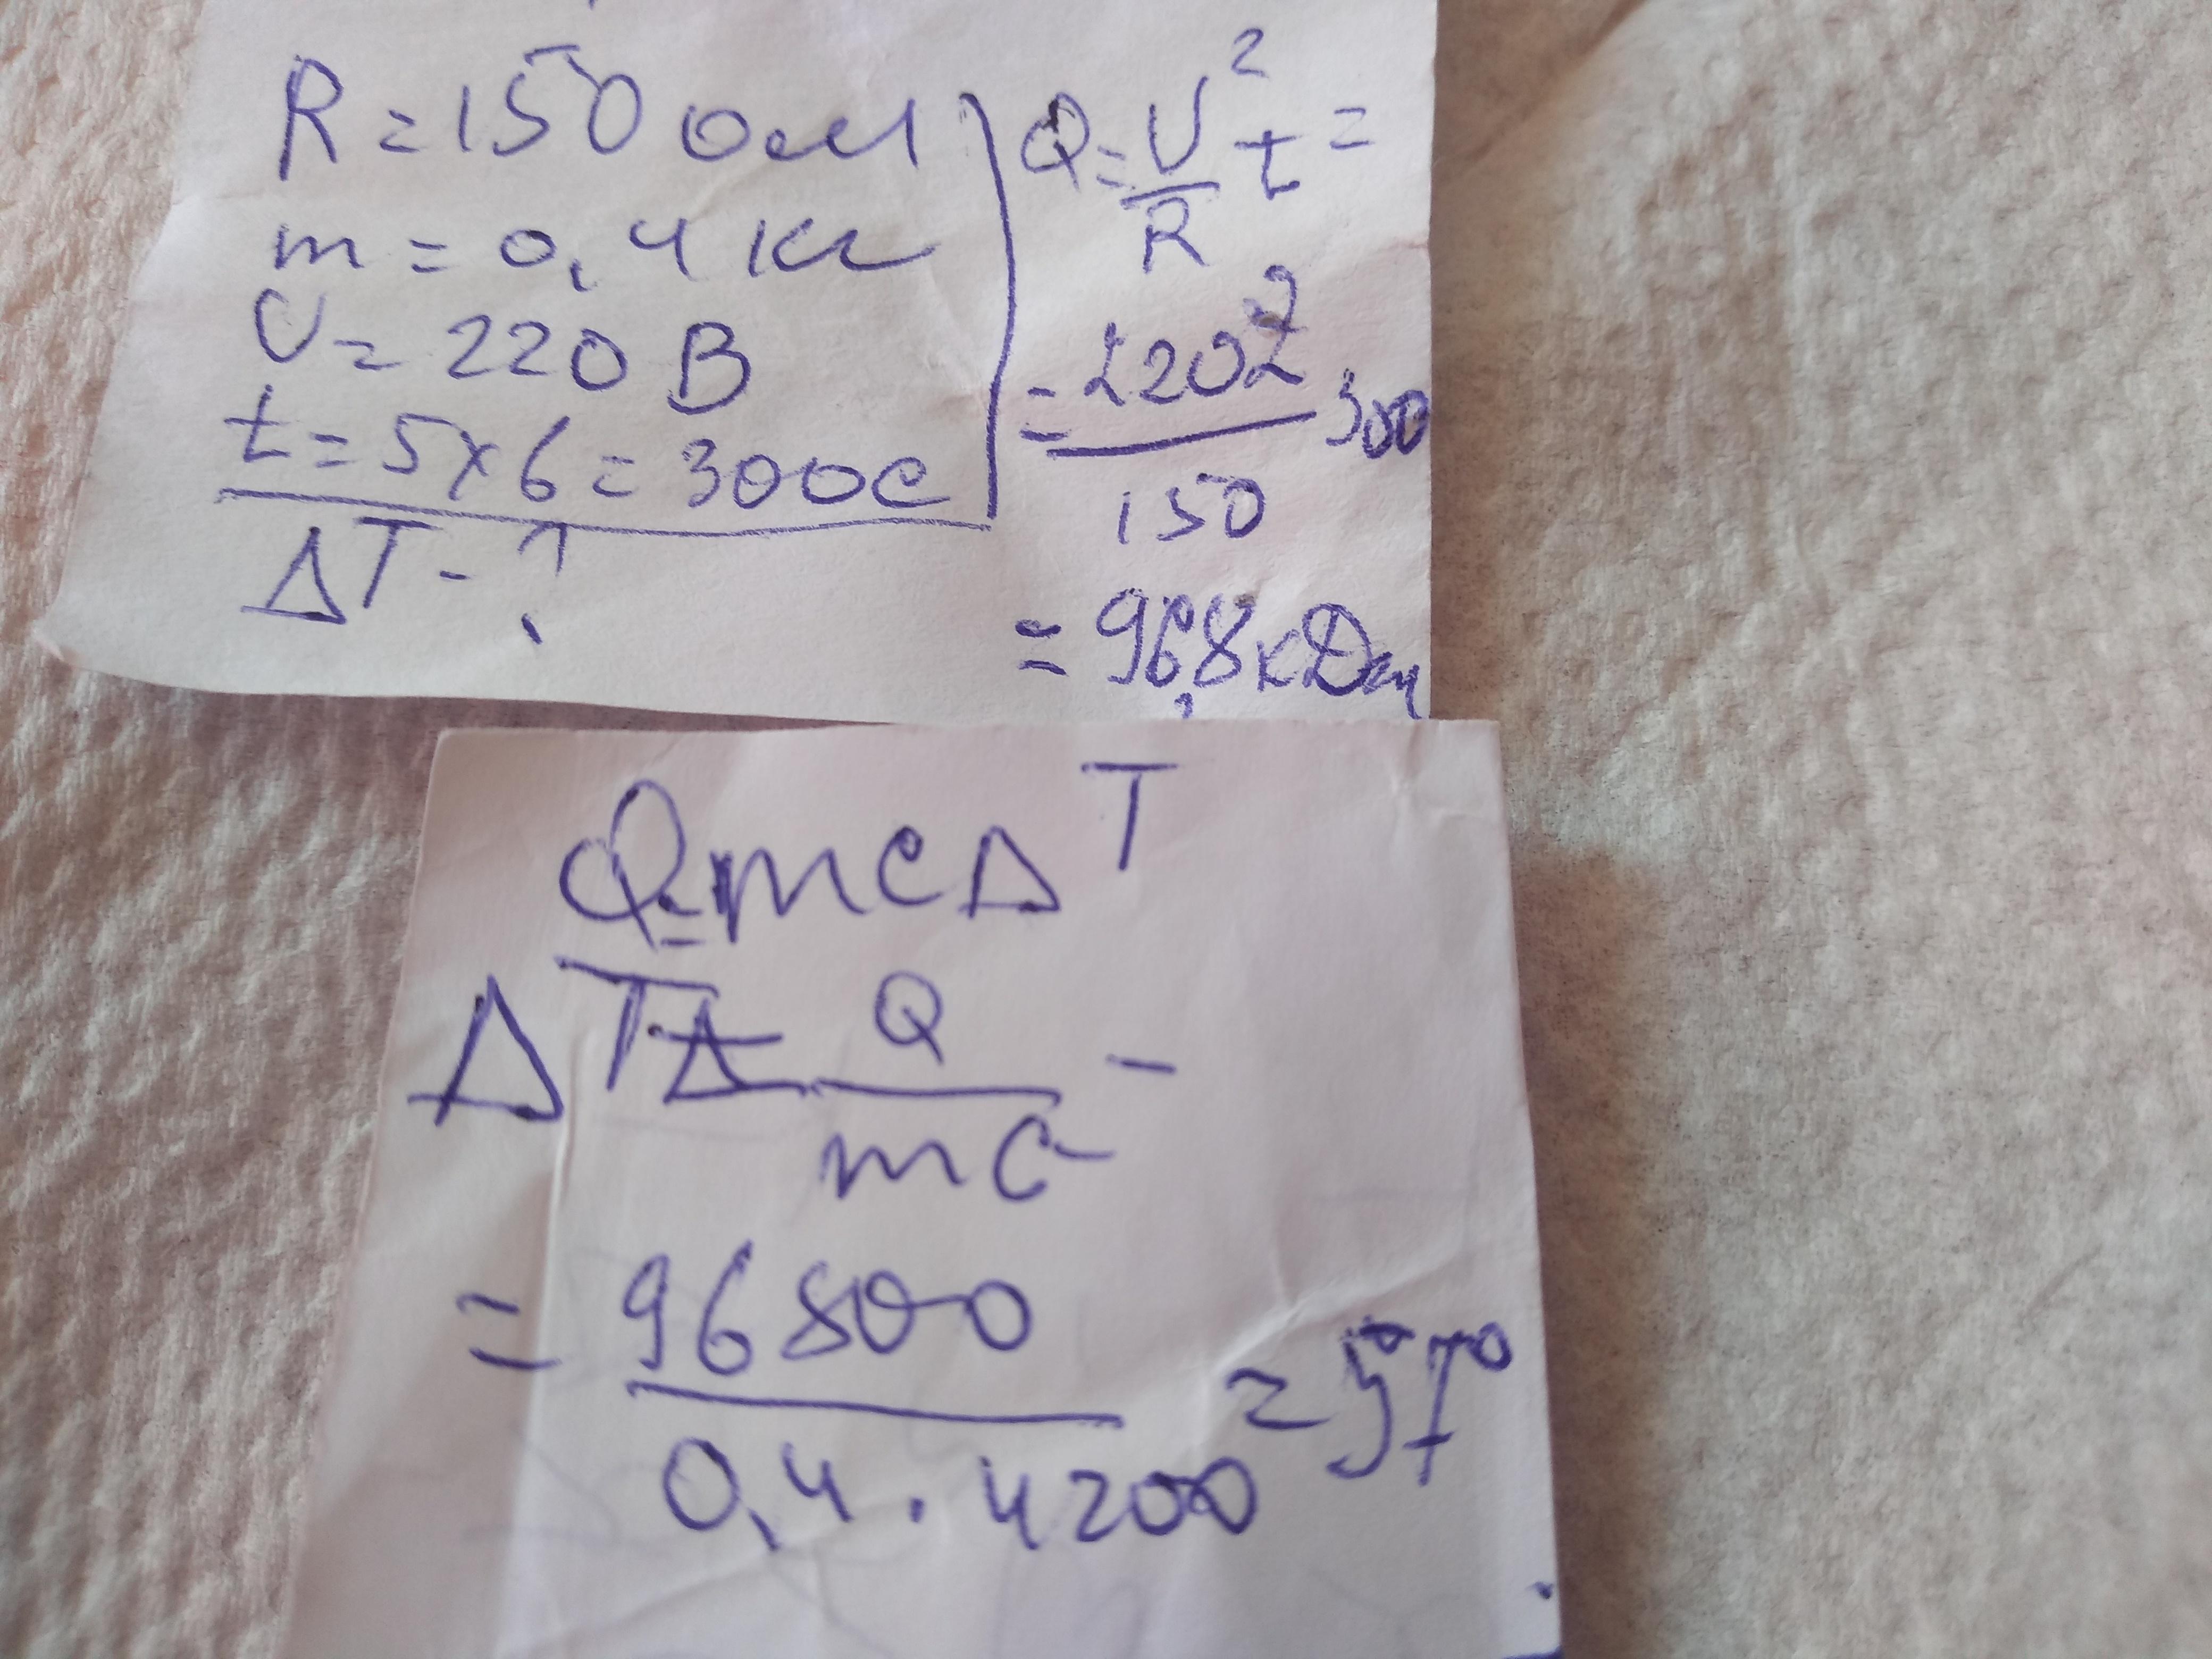 R = 150 Ом
m = 0,4 кг
U = 220 В
t = 5 x 6 = 300 с
ΔT - ?
Q = U² / R t =
= 220² / 150 300
= 96,8 кДж
Q = mcΔT
ΔT = Q / mc -
= 96800 / 0,4 · 4200 = 57°